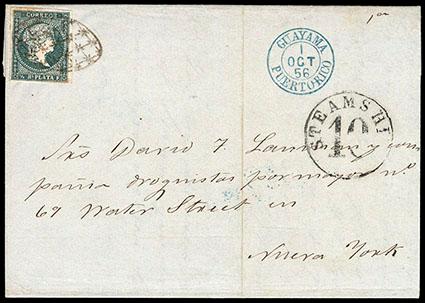 CORREOS
½ Rl. PLATA F.
GUAYAMA
1
OCT
56
PUERTO-RICO
STEAMSHI
10
Srs David T. Lanman y com
pañia droguistas por mayor nº
69 Water Street en
Nueva York.